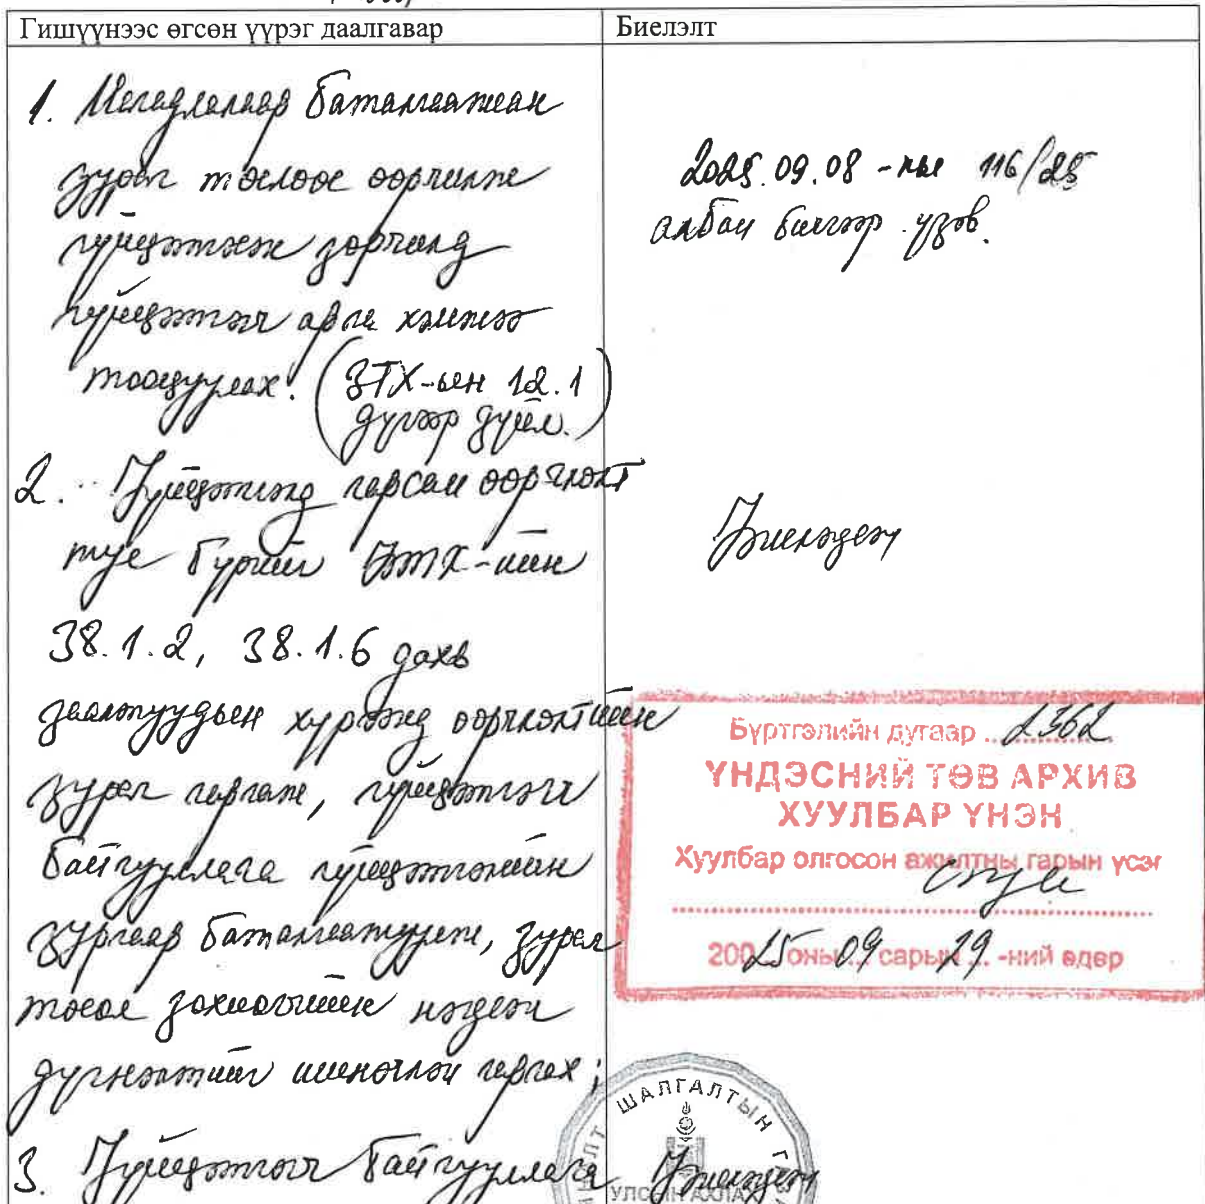 Гишүүнээс өгсөн үүрэг даалгавар
Биелэлт
1. Магадлалаар баталгаажсан
зураг төслөөс өөрчилж
гүйцэтгэсэн зөрчилд
гүйцэтгэгч арга хэмжээ
тооцуулах. (ЗТХ-ын 12.1
дугаар дүйл.)
2. Гүйцэтгэлд гарсан өөрчлөлт
тус бүрийг БТХ-ийн
38.1.2, 38.1.6 дахь
заалтуудын хүрээнд өөрчлөлтийн
зураг гаргаж, гүйцэтгэгч
байгууллага гүйцэтгэлийн
зургаар баталгаажуулж, зураг
төсөл зохиогчийн нэгдсэн
дүгнэлтийг шинэчлэн гаргах;
3. Гүйцэтгэгч байгууллага
2025.09.08-ны 116/25
албан бичгээр үзэв.
Үнэлэгдсэн
Бүртгэлийн дугаар 2362
ҮНДЭСНИЙ ТӨВ АРХИВ
ХУУЛБАР ҮНЭН
Хуулбар олгосон ажилтны гарын үсэг
20025 оны 09 сарын 29 -ний өдөр
ШАЛГАЛТЫН